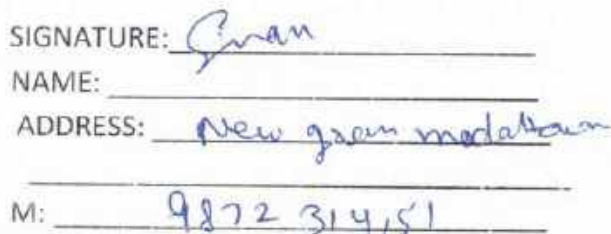 SIGNATURE:
NAME:
ADDRESS: New green modaltown
M: 9872 314151